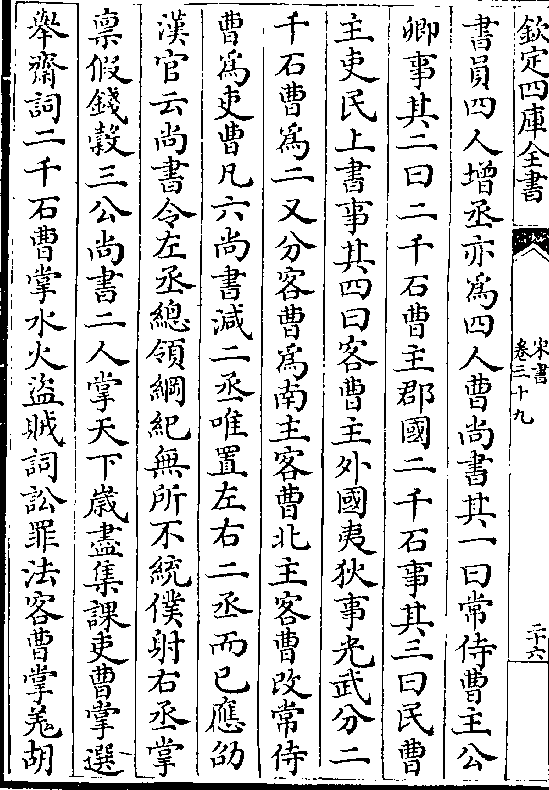 欽定四庫全書
宋書
卷三十九
二十六
書員四人增丞亦爲四人曹尚書其一曰常侍曹主公
卿事其二曰二千石曹主郡國二千石事其三曰民曹
主吏民上書事其四曰客曹主外國夷狄事光武分二
千石曹爲二又分客曹爲南主客曹北主客曹改常侍
曹爲吏曹凡六尚書減二丞唯置左右二丞而已應劭
漢官云尚書令左丞總領綱紀無所不統僕射右丞掌
禀假錢穀三公尚書二人掌天下歲盡集課吏曹掌選
舉齋詞二千石曹掌水火盜賊詞訟罪法客曹掌羌胡